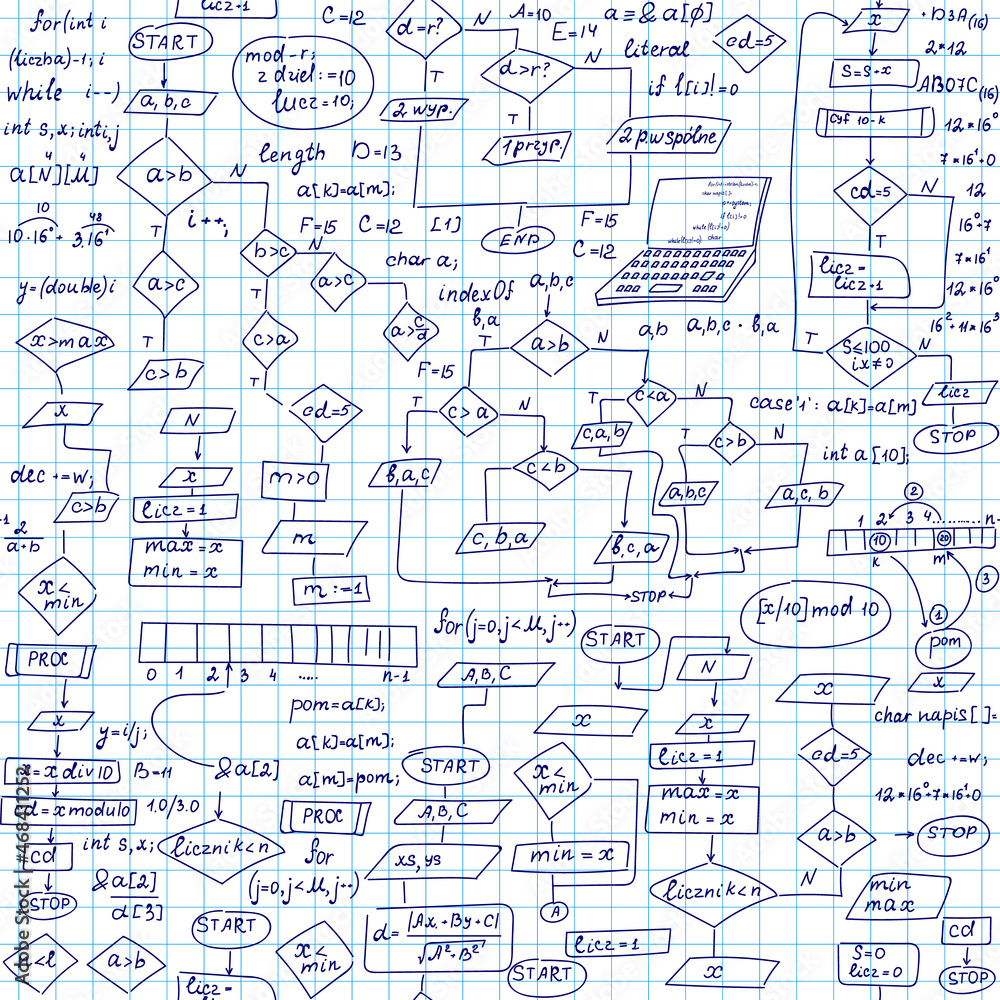 for(int i
(liczba)-1; i
while i--)
int s,x; inti,j
4 4
a[N][M]
10 48
10·16⁰+ 3.16¹
y=(double)i
x>max
x
dec +=w;
c>b
2
a+b
x<
min
PROC
x
y=i/j;
x=x div10
B=11
d=xmodulo
1.0/3.0
cd
STOP
int s,x;
&a[2]
&a[2]
d[3]
a>b
licz+1
START
a,b,c
a>b
N
T
i++;
a>c
T
c>b
b>c
N
T
a>c
c>a
T
a>c/d
cd=5
m>0
m
m:=-1
N
x
licz=1
max=x
min=x
mod-r;
z dziel:=10
lucz=10;
C=12
length D=13
a[k]=a[m];
F=15 C=12 [1]
char a;
d=r?
N
T
A=10
E=14
2 wyp.
d>r?
N
T
1przyp.
2p.wspólne
END
a≡& a[ϕ]
literal
if l[i]!=0
cd=5
F=15
C=12
if(l[i]!=0)
while(l[i]!=0) char
indexOf
a,b,c
b,a
a,b
a,b,c · b,a
F=15
a>b
T
N
c>a
T
N
b,a,c
c<b
c,b,a
b,c,a
c<a
T
N
c,a,b
c>b
T
N
a,b,c
a,c,b
STOP
x
S=S+x
Cyf 10-k
cd=5
N
T
licz-
licz-1
S≤100
ix≠0
T
N
licz
STOP
·D3A(16)
2*12
AB07C(16)
12*16⁰
7*16¹+0
12
16⁰+7
7*16¹
12*16⁰
16²+11*16³
case'1': a[k]=a[m]
int a [10];
1 2 3 4 ......... n-
2
10
20
k
m
3
1
pom
[x/10] mod 10
0 1 2 3 4 ..... n-1
pom=a[k];
a[k]=a[m];
a[m]=pom;
licznik<n
PROC
for
(j=0,j<M,j++)
START
licz-
x<
min
for(j=0,j<M,j++)
A,B,C
START
A,B,C
xs,ys
d= |Ax+By+C|
√A²+B²
START
N
x
x
licz=1
max=x
min=x
x<
min
min=x
A
licz=1
START
licznik<n
N
x
x
cd=5
a>b
STOP
x
char napis[]=
dec +=w;
12*16⁰+7*16¹+0
min
max
cd
S=0
licz=0
STOP
Adobe Stock | #468411252